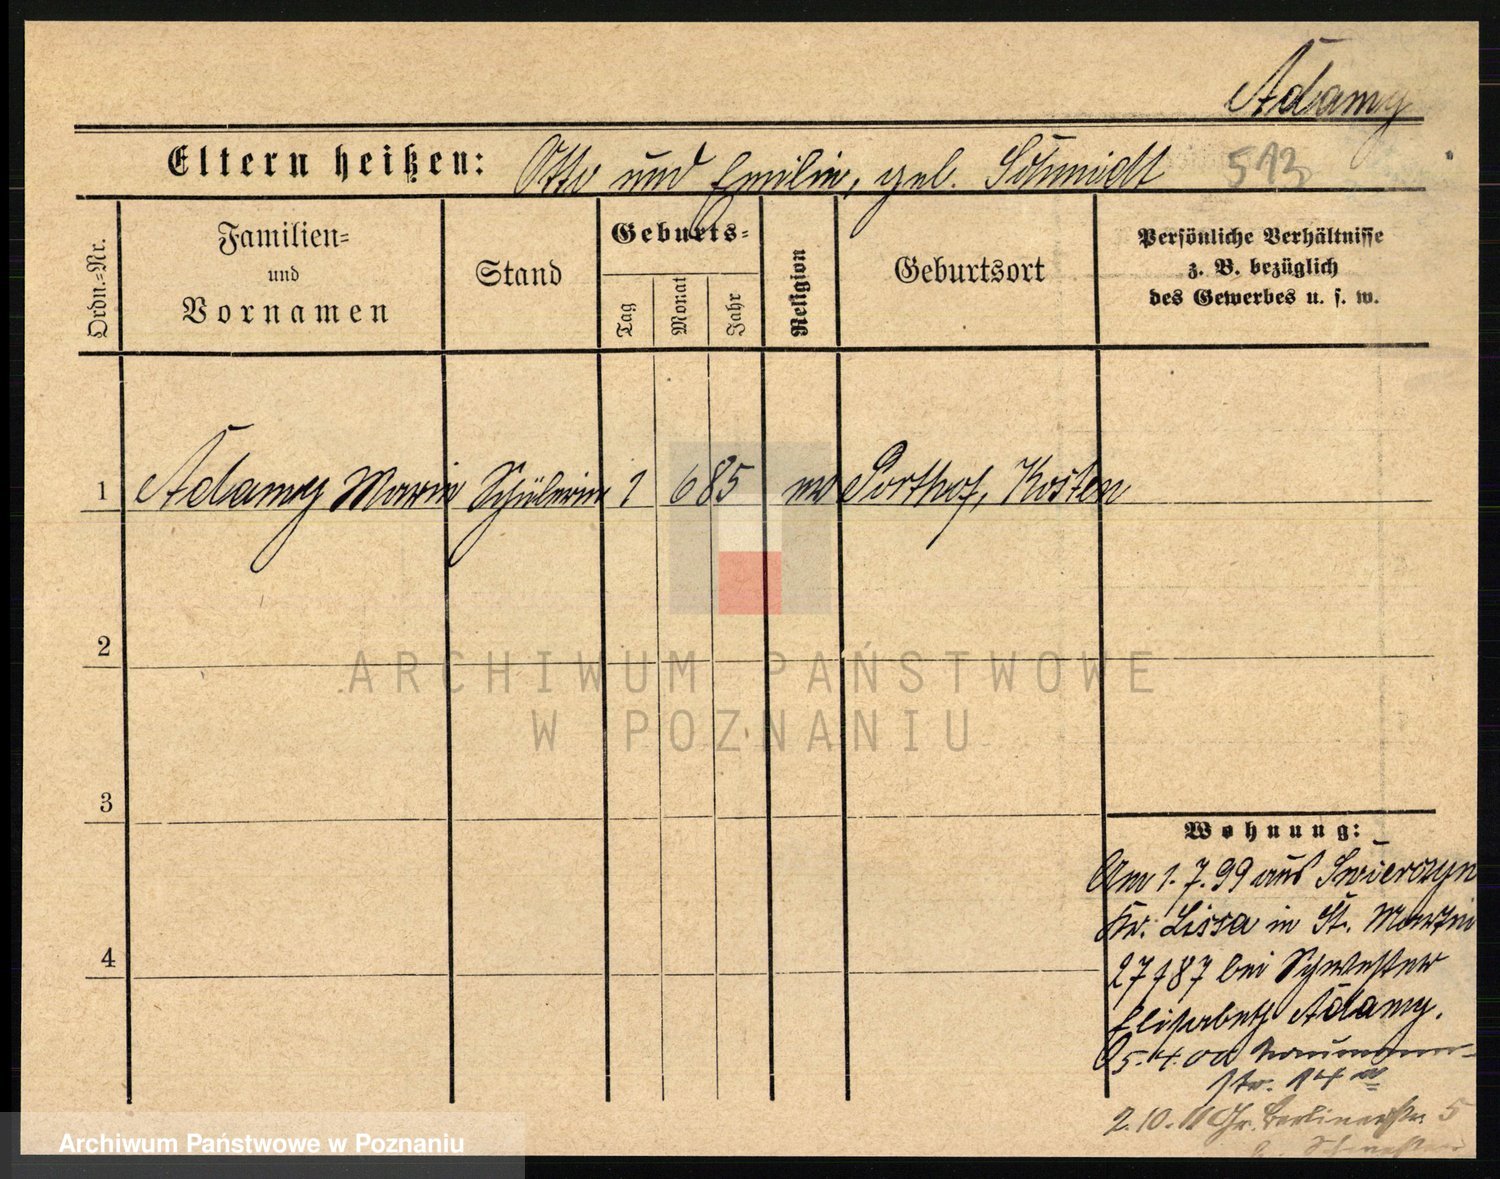 Adamy
Eltern heißen: Otto und Emilie, geb. Schmidt 513
Ordn.-Nr.
Familien-
und
Vornamen
Stand
Geburts-
Tag
Monat
Jahr
Religion
Geburtsort
Persönliche Verhältnisse
z. B. bezüglich
des Gewerbes u. s. w.
1 Adamy Marie Schülerin 1 6 85 Kosten
2
ARCHIWUM PAŃSTWOWE
W POZNANIU
3
4
Wohnung:
Am 1.7.99 aus Swierczyn
Kr. Lissa in St. Martin
27 bei Schwester
Elisabeth Adamy.
5.4.00 Naumann-
str. 14
2.10. Gr. Berlinerstr. 5
Archiwum Państwowe w Poznaniu